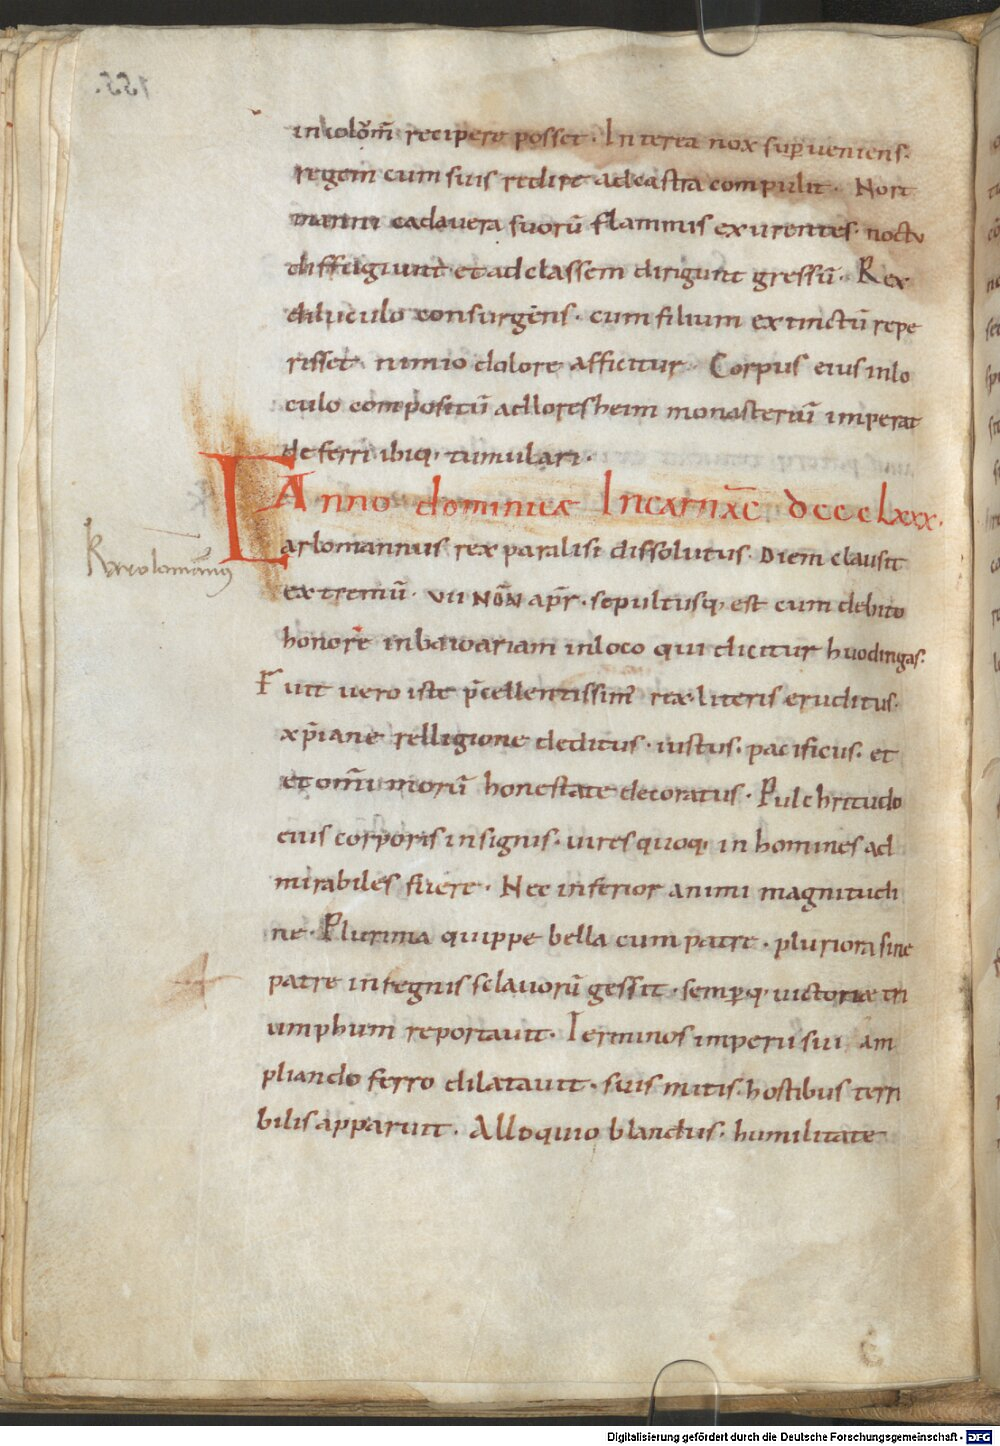 155.
incolom̄ recipere posset. Interea nox sup̄ueniens.
regem cum suis redire ad castra compulit. Nort
manni cadauera suorū flammis exurentes. noctu
diffugiunt et ad classem dirigunt gressū. Rex
diluculo consurgens. cum filium extinctū repe
risset. nimio dolore afficitur. Corpus eius inlo
culo compositū ad loresheim monasteriū imperat
deferri ibiq; tumulari.
Anno dominicæ Incarnac̄ dccclxxx.
Karolomannus
Larlomannus rex paralisi dissolutus. Diem clausit
extremū. vii NON̄ apr̄. sepultusq; est cum debito
honore in bawariam in loco qui dicitur huodingas.
Fuit uero iste p̄cellentissim' rex. literis eruditus.
xp̄iane relligione deditus. iustus. pacificus. et
et om̄i morū honestate decoratus. Pulchritudo
eius corporis insignis. uires quoq; in homines ad
mirabiles fuere. Nec inferior animi magnitudi
ne. Plurima quippe bella cum patre. pluriora sine
patre in regnis sclauorū gessit. semp̄q; uictoriæ tri
umphum reportauit. Terminos imperii sui am
pliando ferro dilatauit. suis mitis. hostibus terri
bilis apparuit. Alloquio blandus. humilitate
Digitalisierung gefördert durch die Deutsche Forschungsgemeinschaft - DFG